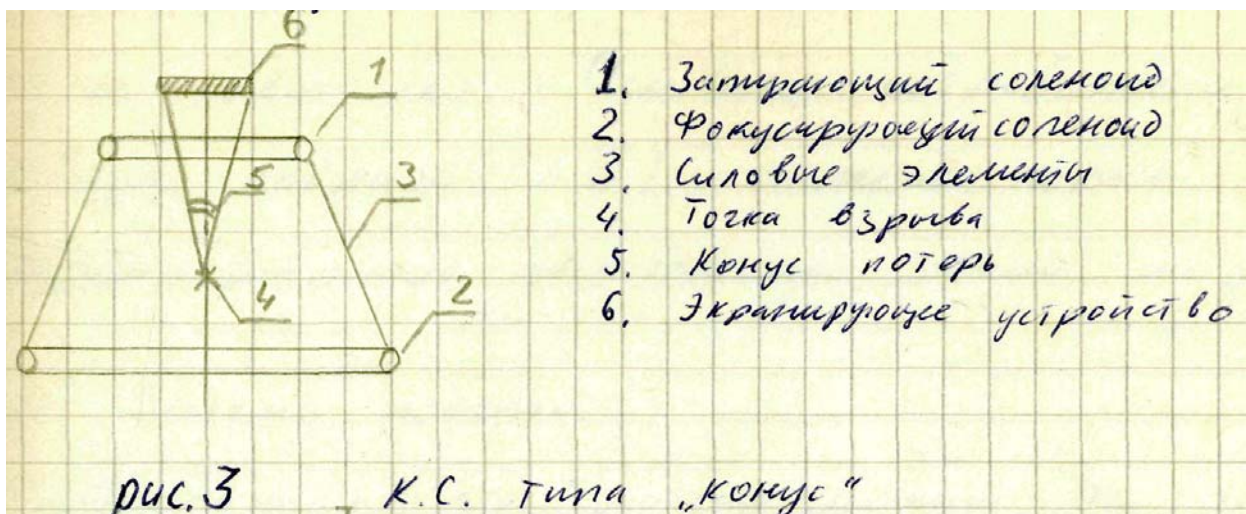 6
1
5
3
4
2
1. Запирающий соленоид
2. Фокусирующий соленоид
3. Силовые элементы
4. Точка взрыва
5. Конус потерь
6. Экранирующее устройство
рис.3 К.С. типа „конус“